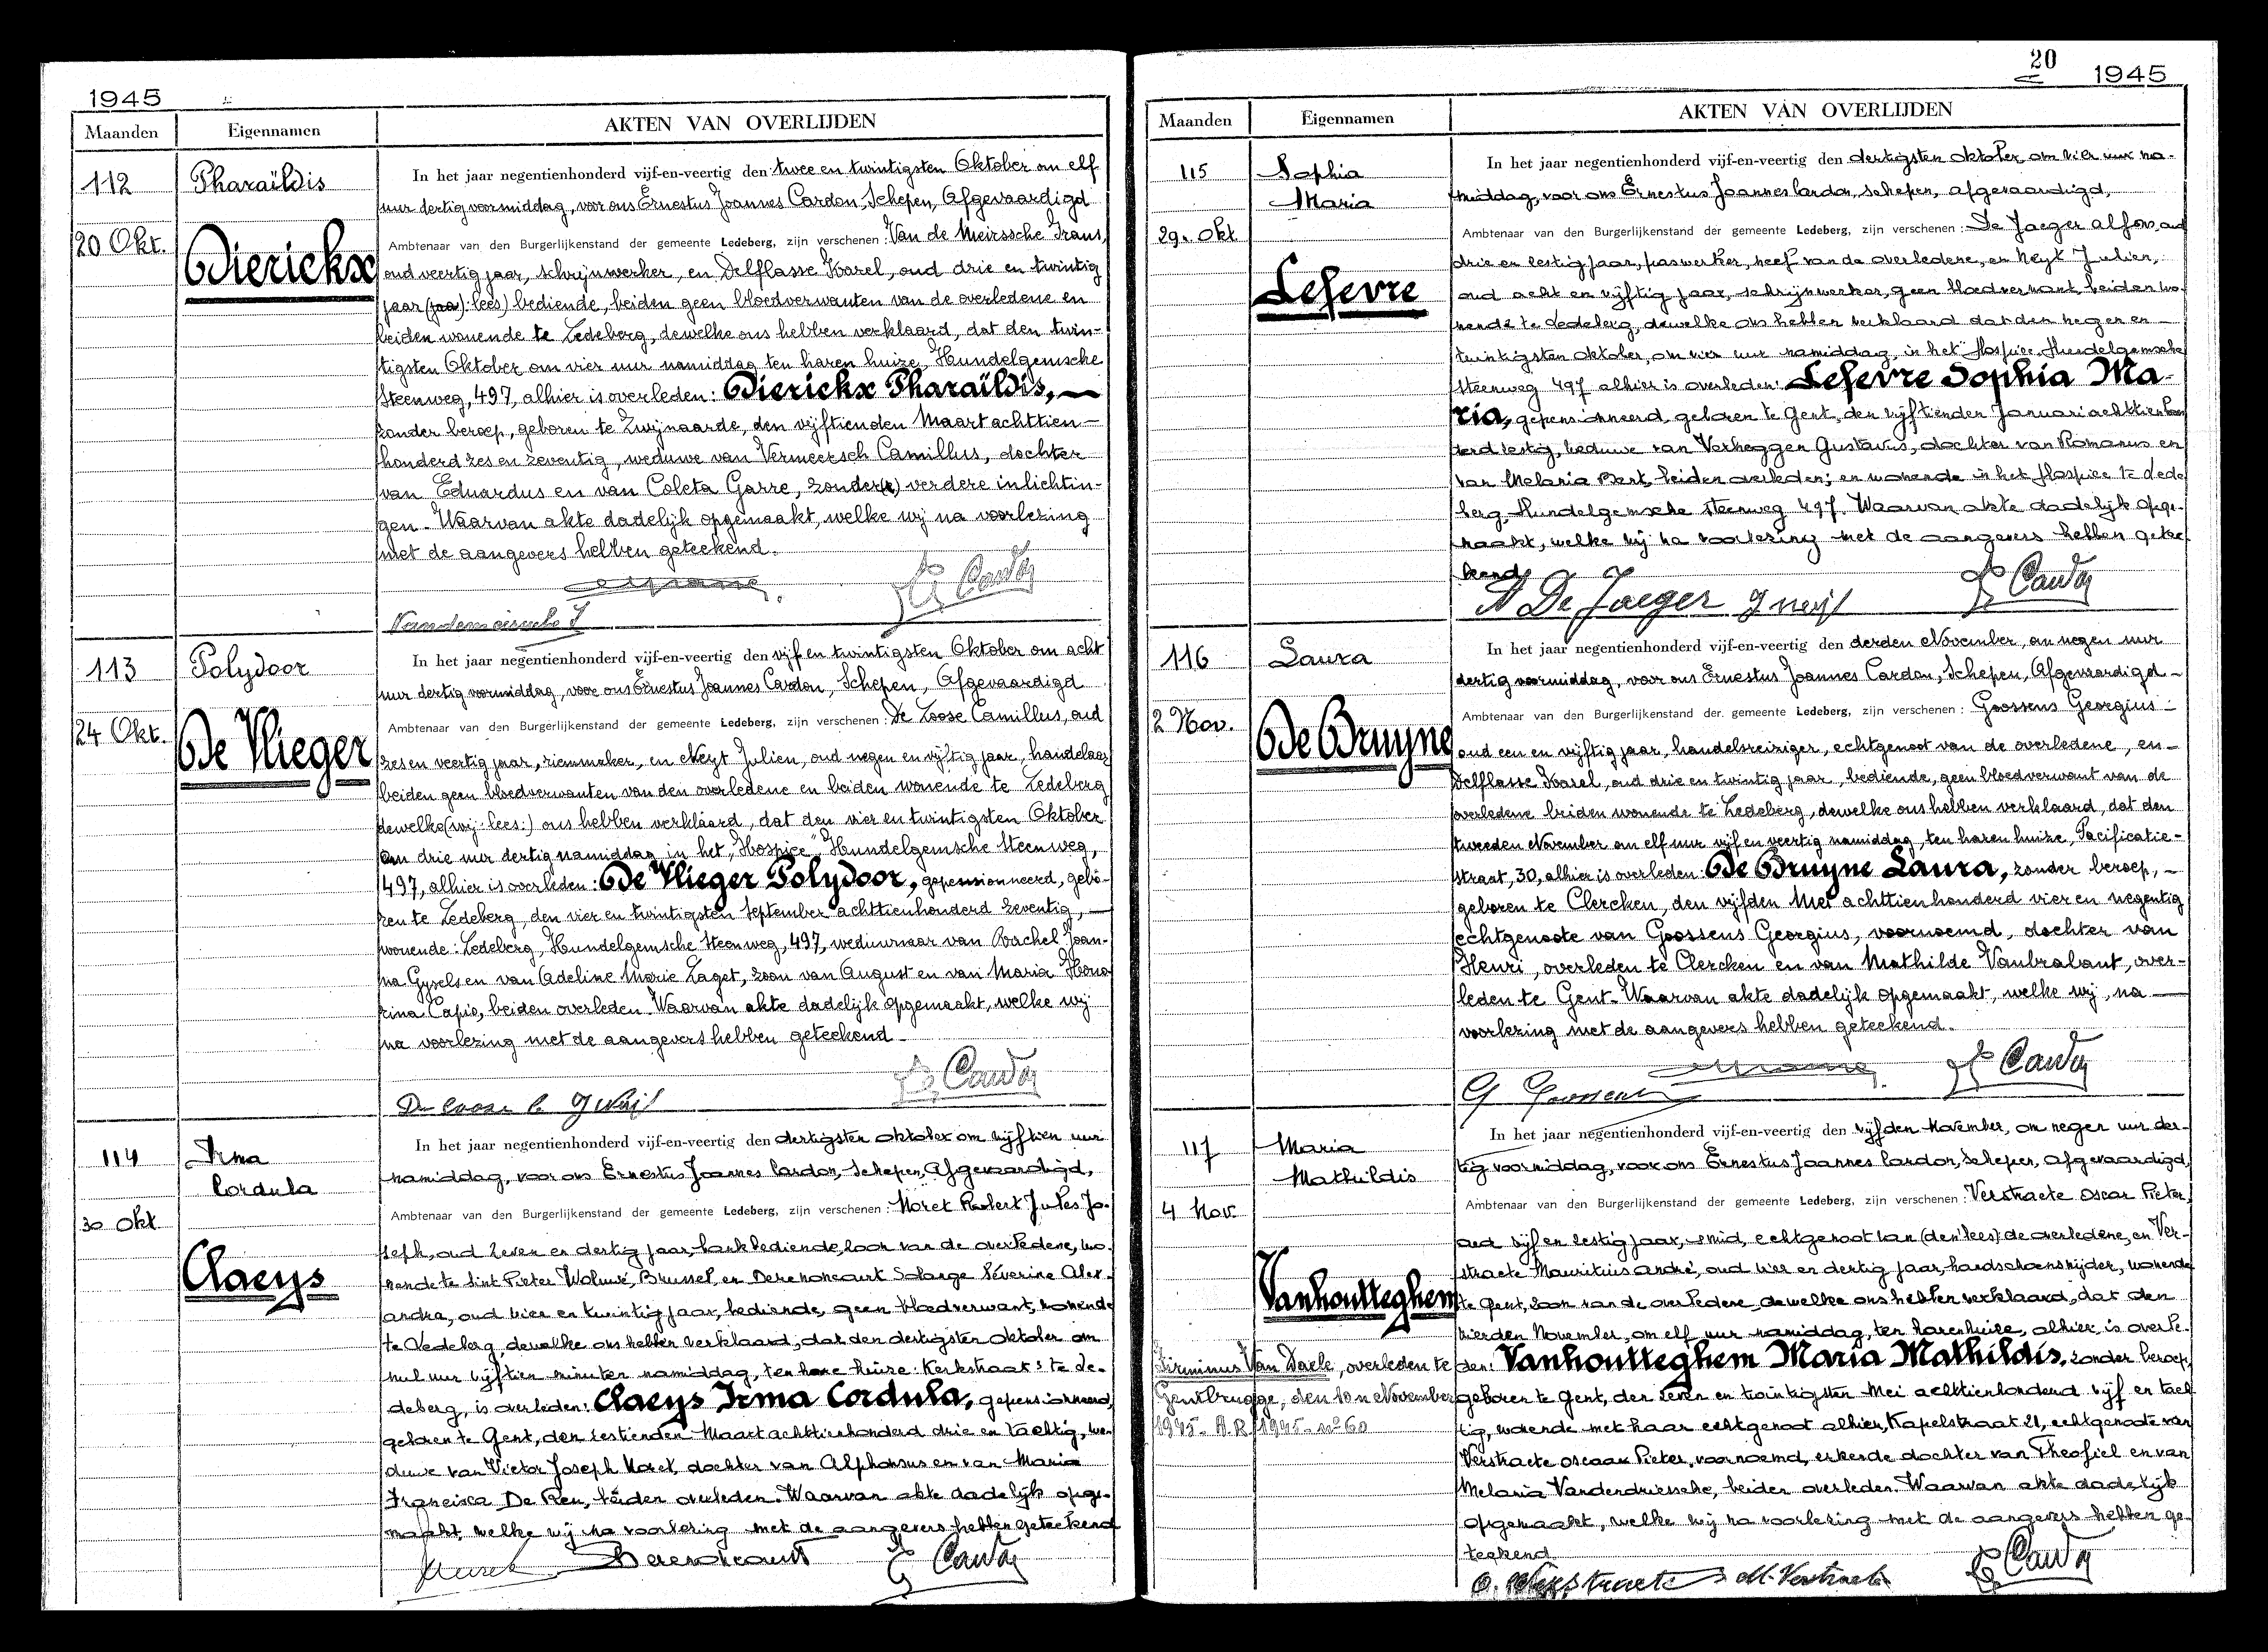 1945
Maanden Eigennamen AKTEN VAN OVERLIJDEN
112
Pharaïldis
20 Okt.
Dierickx
In het jaar negentienhonderd vijf-en-veertig den twee en twintigsten Oktober om elf
uur dertig voormiddag, voor ons Ernestus Joannes Cardon, Schepen, Afgevaardigd
Ambtenaar van den Burgerlijkenstand der gemeente Ledeberg, zijn verschenen: Van de Meirssche Frans,
oud veertig jaar, schrijnwerker, en Delflasse Karel, oud drie en twintig
jaar (jaa): lees) bediende, beiden geen bloedverwanten van de overledene en
beiden wonende te Ledeberg, dewelke ons hebben verklaard, dat den twin-
tigsten Oktober om vier uur namiddag ten haren huize, Hundelgemsche
Steenweg, 497, alhier is overleden: Dierickx Pharaïldis,
zonder beroep, geboren te Zwijnaarde, den vijftienden Maart achttien-
honderd zes en zeventig, weduwe van Vermeersch Camillus, dochter
van Eduardus en van Coleta Garre, zonder verdere inlichtin-
gen. Waarvan akte dadelijk opgemaakt, welke wij na voorlezing
met de aangevers hebben geteekend.
113
Polydoor
24 Okt.
De Vlieger
In het jaar negentienhonderd vijf-en-veertig den vijf en twintigsten Oktober om acht
uur dertig voormiddag, voor ons Ernestus Joannes Cardon, Schepen, Afgevaardigd
Ambtenaar van den Burgerlijkenstand der gemeente Ledeberg, zijn verschenen: De Loose Camillus, oud
zes en veertig jaar, riemmaker, en Neyt Julien, oud negen en vijftig jaar, handelaar
beiden geen bloedverwanten van den overledene en beiden wonende te Ledeberg
dewelke (wij: lees:) ons hebben verklaard, dat den vier en twintigsten Oktober
om drie uur dertig namiddag in het "Hospice", Hundelgemsche Steenweg,
497, alhier is overleden: De Vlieger Polydoor, gepensionneerd, gebo-
ren te Ledeberg, den vier en twintigsten September achttienhonderd zeventig,
wonende: Ledeberg, Hundelgemsche Steenweg, 497, weduwnaar van Rachel Joan-
na Gysels en van Adeline Marie Laget, zoon van August en van Maria Hono-
rina Capie, beiden overleden. Waarvan akte dadelijk opgemaakt, welke wij
na voorlezing met de aangevers hebben geteekend.
De Loose C. J Neyt
114
Irma
Cordula
30 Okt
Claeys
In het jaar negentienhonderd vijf-en-veertig den dertigsten oktober om vijftien uur
namiddag, voor ons Ernestus Joannes Cardon, Schepen, Afgevaardigd,
Ambtenaar van den Burgerlijkenstand der gemeente Ledeberg, zijn verschenen: Moret Robert Jules Jo-
seph, oud zeven en dertig jaar, bankbediende, zoon van de overledene, wo-
nende te Sint Pieter Woluwe, Brussel, en Derenoncourt Solange Séverine Alex-
andra, oud vier en twintig jaar, bediende, geen bloedverwant, wonende
te Ledeberg, dewelke ons hebben verklaard, dat den dertigsten oktober om
nul uur vijftien minuten namiddag, ten hare huize: Kerkstraat: te Le-
deberg, is overleden: Claeys Irma Cordula, gepensionneerd,
geboren te Gent, den zestienden Maart achttienhonderd drie en tachtig, we-
duwe van Victor Joseph Moret, dochter van Alphonsus en van Maria
Francisca De Reu, beiden overleden. Waarvan akte dadelijk opge-
maakt, welke wij na voorlezing met de aangevers hebben geteekend
20
1945
Maanden Eigennamen AKTEN VAN OVERLIJDEN
115
Sophia
Maria
29. Okt
Lefevre
In het jaar negentienhonderd vijf-en-veertig den dertigsten oktober, om vier uur na-
middag, voor ons Ernestus Joannes Cardon, Schepen, afgevaardigd,
Ambtenaar van den Burgerlijkenstand der gemeente Ledeberg, zijn verschenen: De Jaeger Alfons, oud
drie en zestig jaar, paswerker, neef van de overledene, en Neyt Julien,
oud acht en vijftig jaar, schrijnwerker, geen bloedverwant, beiden wo-
nende te Ledeberg, dewelke ons hebben verklaard dat den negen en
twintigsten oktober, om vier uur namiddag, in het Hospice Hundelgemsche
steenweg 497 alhier is overleden: Lefevre Sophia Ma-
ria, gepensionneerd, geboren te Gent, den vijftienden Januari achttienhon-
derd zestig, weduwe van Verheggen Gustavus, dochter van Romanus en
van Melania Bert, beiden overleden; en wonende in het Hospice te Lede
berg, Hundelgemsche steenweg 497. Waarvan akte dadelijk opge-
maakt, welke wij na voorlezing met de aangevers hebben getee-
kend
A De Jaeger J neyt
116
Laura
2 Nov.
De Bruyne
In het jaar negentienhonderd vijf-en-veertig den derden November, om negen uur
dertig voormiddag, voor ons Ernestus Joannes Cardon, Schepen, Afgevaardigd
Ambtenaar van den Burgerlijkenstand der gemeente Ledeberg, zijn verschenen: Goossens Georgius
oud een en vijftig jaar, handelsreiziger, echtgenoot van de overledene, en
Delflasse Karel, oud drie en twintig jaar, bediende, geen bloedverwant van de
overledene beiden wonende te Ledeberg, dewelke ons hebben verklaard, dat den
tweeden November om elf uur vijf en veertig namiddag, ten haren huize, Pacificatie-
straat, 30, alhier is overleden: De Bruyne Laura, zonder beroep,
geboren te Clercken, den vijfden Mei achttienhonderd vier en negentig
echtgenoote van Goossens Georgius, voornoemd, dochter van
Henri, overleden te Clercken en van Mathilde Vanbrabant, over-
leden te Gent. Waarvan akte dadelijk opgemaakt, welke wij, na
voorlezing met de aangevers hebben geteekend.
G Goossens
117
Maria
Mathildis
4 Nov.
Vanhoutteghem
Firminus Van Daele, overleden te
Gentbrugge, den 10n November
1945. A.R. 1945. no 60
In het jaar negentienhonderd vijf-en-veertig den vijfden November, om negen uur der-
tig voormiddag, voor ons Ernestus Joannes Cardon, Schepen, afgevaardigd,
Ambtenaar van den Burgerlijkenstand der gemeente Ledeberg, zijn verschenen: Verstraete Oscar Pieter,
oud vijf en zestig jaar, smid, echtgenoot van (den: lees) de overledene, en Ver-
straete Mauritius André, oud vier en dertig jaar, handschoensnijder, wonende
te Gent, zoon van de overledene, dewelke ons hebben verklaard, dat den
vierden November, om elf uur namiddag, ten haren huize, alhier, is overle-
den: Vanhoutteghem Maria Mathildis, zonder beroep,
geboren te Gent, den zeven en twintigsten Mei achttienhonderd vijf en tach
tig, wonende met haar echtgenoot alhier, Kapelstraat 21, echtgenoote van
Verstraete Oscar Pieter, voornoemd, erkende dochter van Theofiel en van
Melania Vanderdriessche, beiden overleden. Waarvan akte dadelijk
opgemaakt, welke wij na voorlezing met de aangevers hebben ge-
teekend
O. Verstraete M. Verstraete